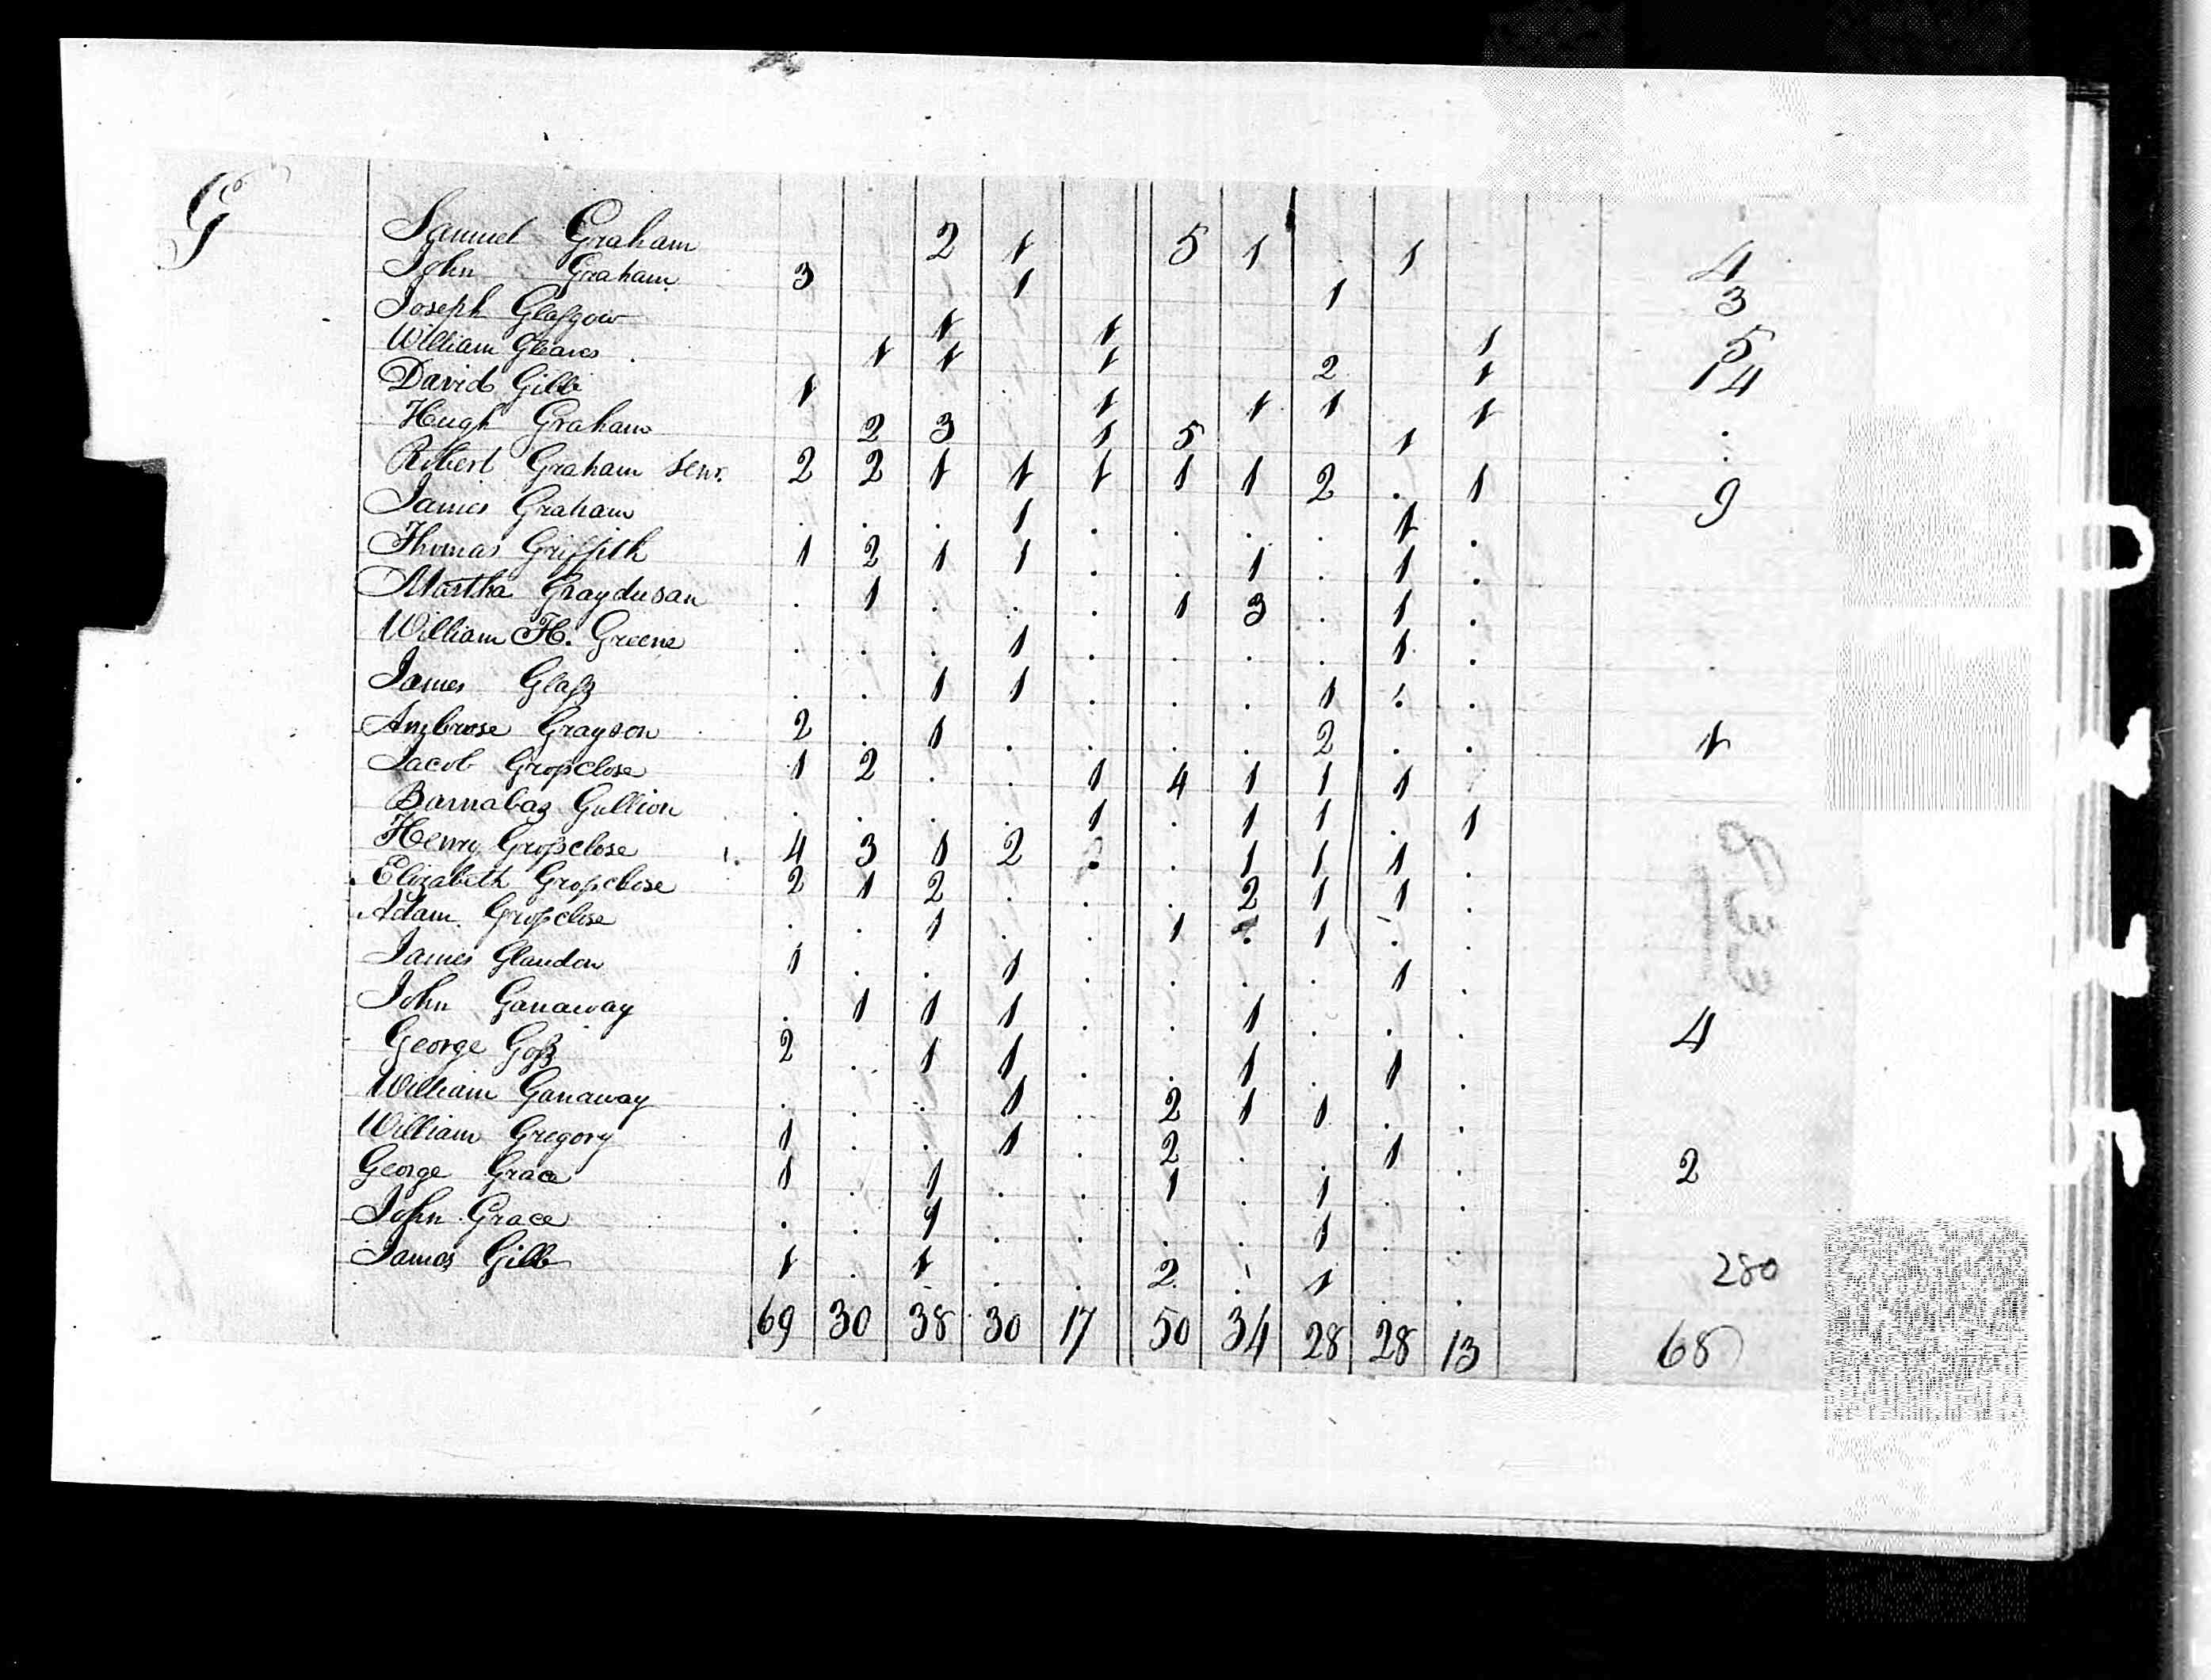 G
Samuel Graham 2 1 5 1 . 1 4
John Graham 3 1 1 3
Joseph Glaßgow 1 1 1 5
William Gleaves 1 1 1 2 1 14
David Gibb 1 1 1 1 1
Hugh Graham 2 3 1 5 1
Robert Graham Senr. 2 2 1 1 1 1 1 2 . 1 9
James Graham . . . 1 . . . . 1 .
Thomas Griffith 1 2 1 1 . . 1 . 1 .
Martha Graydusan . 1 . . . 1 3 . 1 .
William H. Greene . . . 1 . . . . 1 .
James Glaß . . 1 1 . . . 1 . .
Ambrose Grayson 2 . 1 . . . . 2 . . 1
Jacob Großclose 1 2 . . 1 4 1 1 1
Barnabas Gullion . . . . 1 . 1 1 . 1
Henry Großclose 4 3 1 2 . . 1 1 1 .
Elizabeth Großclose 2 1 2 . . . 2 1 1 .
Adam Großclose . . 1 . . 1 . 1 . .
James Glandon 1 . . 1 . . . . 1 .
John Ganaway . 1 1 1 . . 1 . . . 4
George Goß 2 . 1 1 . . 1 . 1 .
William Ganaway . . . 1 . 2 1 1 . .
William Gregory 1 . . 1 . 2 . . 1 . 2
George Grace 1 . 1 . . 1 . 1 . .
John Grace . . 1 . . . . 1 . .
James Gibb 1 . 1 . . 2 . 1 . .
280
69 30 38 30 17 50 34 28 28 13 68